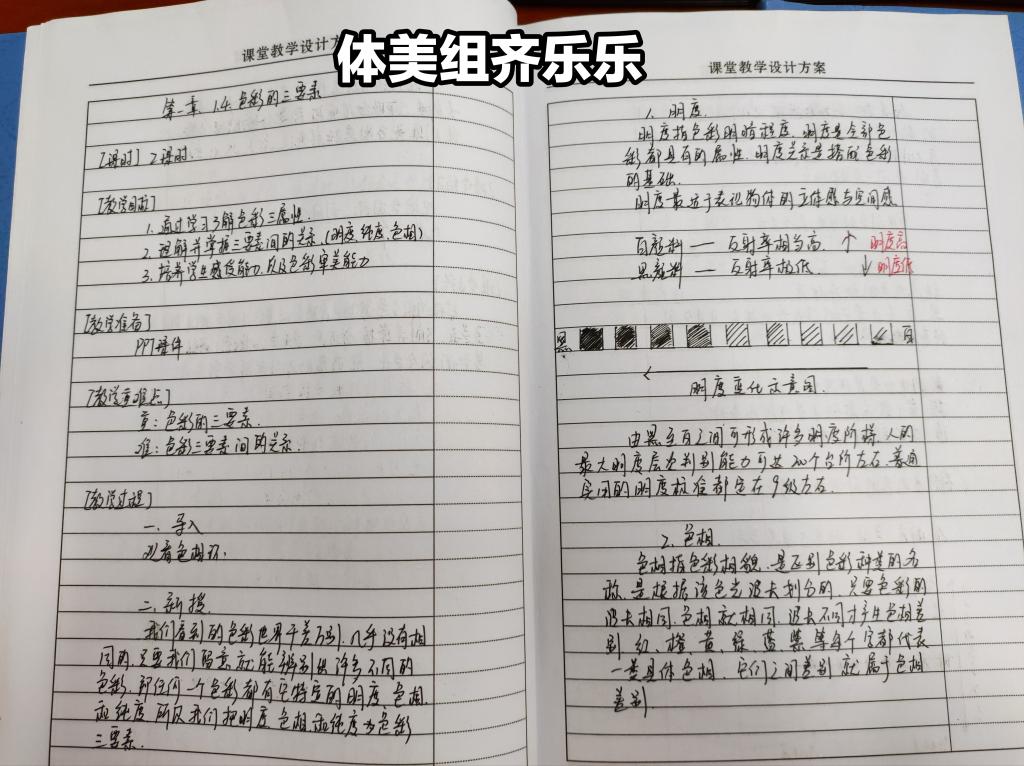 体美组齐乐乐
课堂教学设计方
第一章 1.4 色彩的三要素
[课时] 2课时
[教学目标]
1. 通过学习了解色彩三属性.
2. 理解并掌握三要素间的关系.(明度,纯度,色相)
3. 培养学生感受能力,以及色彩审美能力
[教学准备]
PPT课件
[教学重难点]
重:色彩的三要素.
难:色彩三要素间的关系.
[教学过程]
一、导入
观看色相环.
二、新授.
我们看到的色彩世界千差万别,几乎没有相
同的,只要我们留意就能辨别出许多不同的
色彩,那任何一个色彩都有它特定的明度、色相,
和纯度 所以我们把明度 色相和纯度为色彩
三要素.
课堂教学设计方案
1. 明度.
明度指色彩明暗程度,明度是全部色
彩都具有的属性,明度关系是搭配色彩
的基础.
明度最适于表现物体的立体感与空间感
白颜料 — 反射率相当高. ↑ 明度高
黑颜料 — 反射率极低. ↓ 明度低
黑 白
明度变化示意图.
由黑至白之间可形成许多明度阶梯,人的
最大明度层次判别能力可达200个台阶左右,普通
实用的明度标准都定在9级左右.
2. 色相.
色相指色彩相貌,是区别色彩种类的名
称,是根据该色光波长划分的,只要色彩的
波长相同,色相就相同,波长不同才产生色相差
别,红、橙、黄、绿、蓝、紫等每个字都代表
一类具体色相,它们之间差别就属于色相
差别.